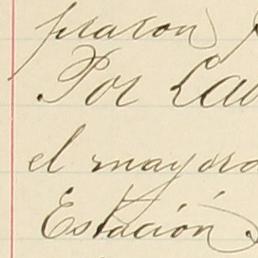 praron
Por Lav
el mayoro
Estación